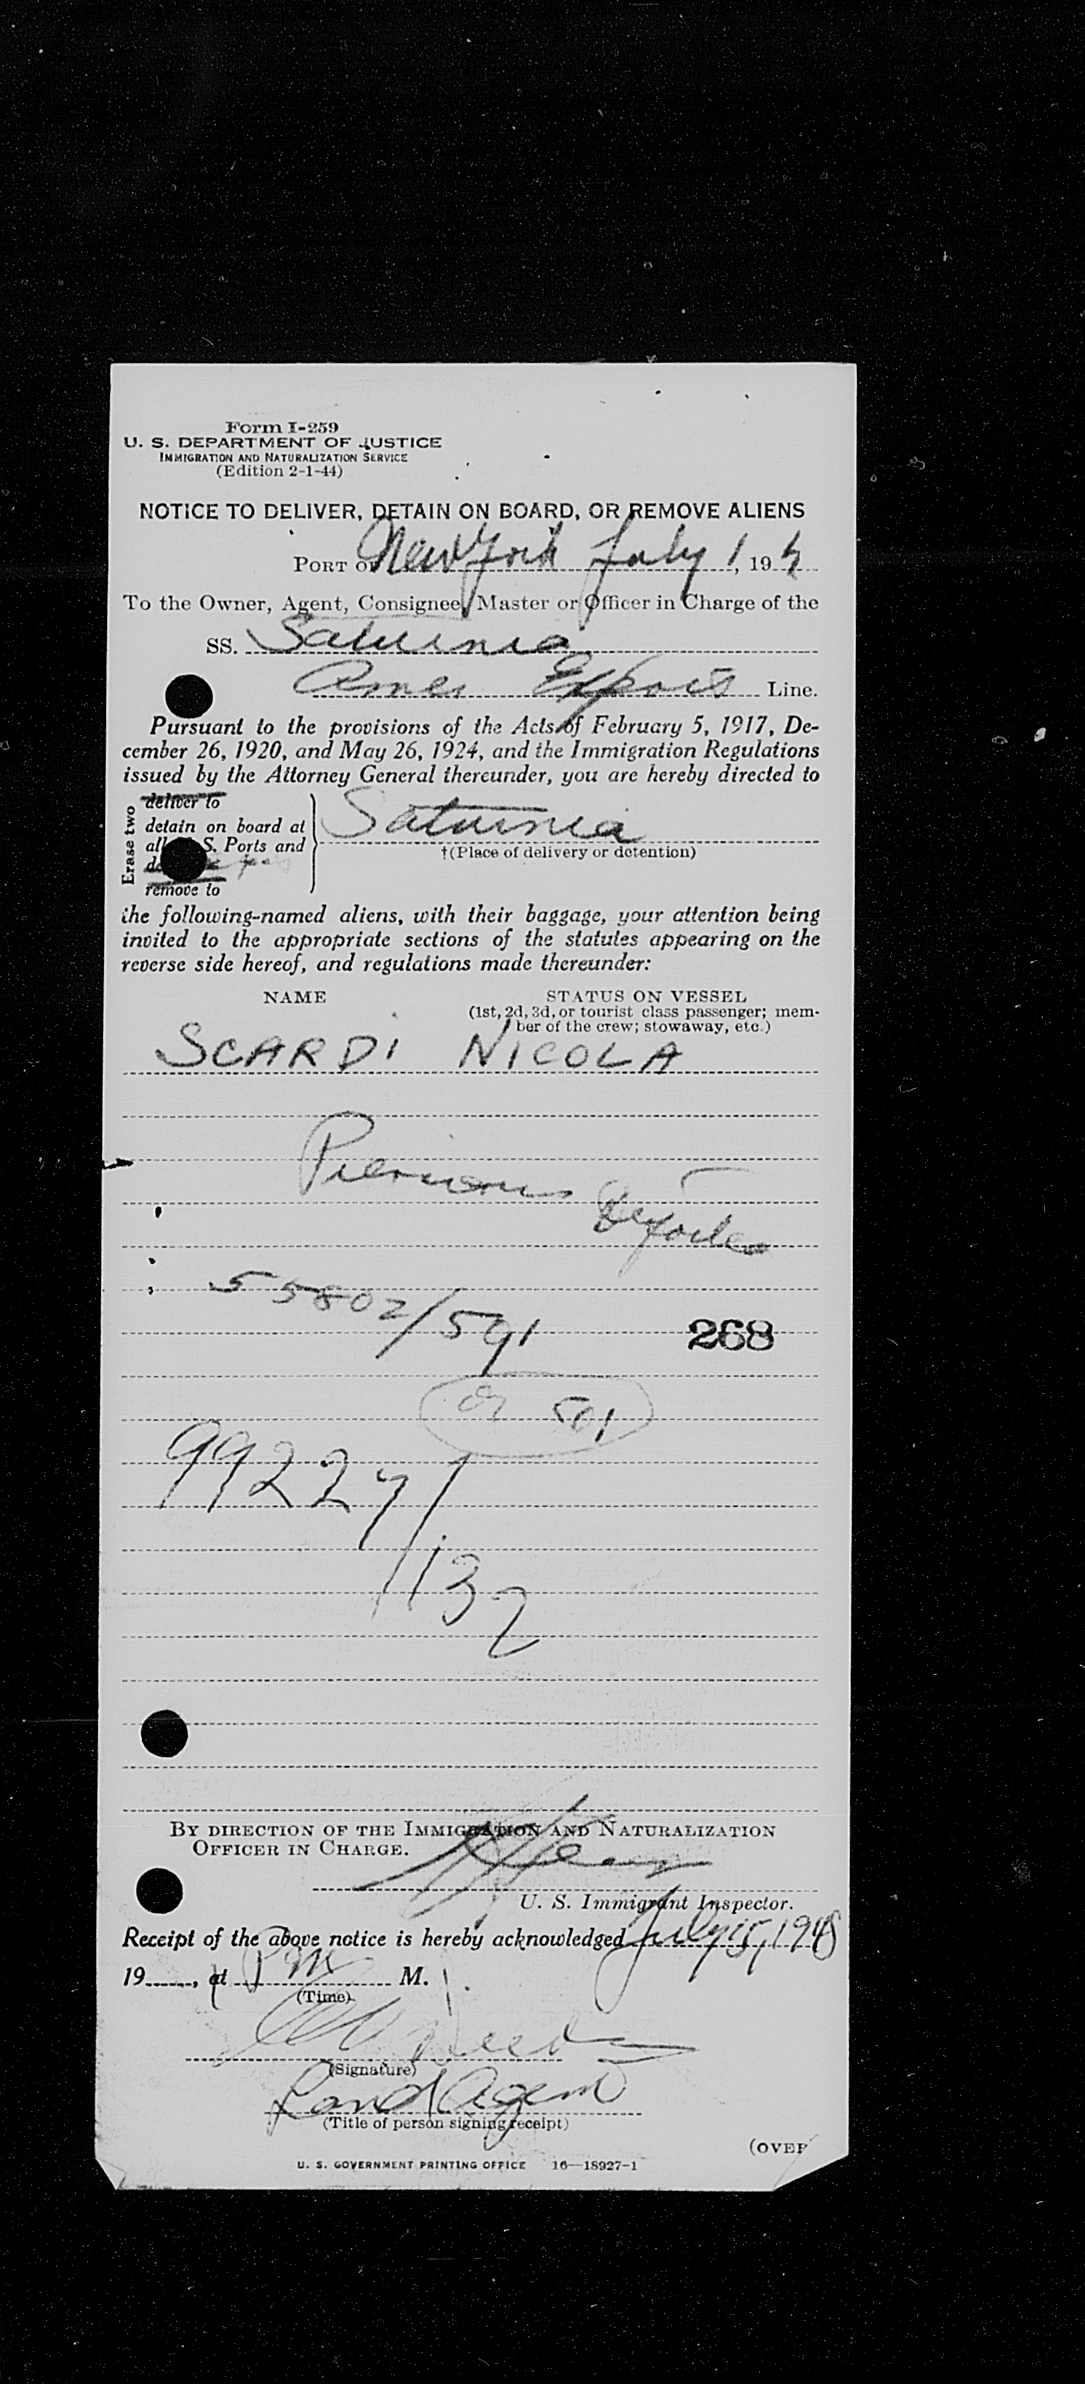 Form I-259
U. S. DEPARTMENT OF JUSTICE
IMMIGRATION AND NATURALIZATION SERVICE
(Edition 2-1-44)
NOTICE TO DELIVER, DETAIN ON BOARD, OR REMOVE ALIENS
PORT OF New York July 1, 19
To the Owner, Agent, Consignee, Master or Officer in Charge of the
SS. Saturnia
Amer Export Line.
Pursuant to the provisions of the Acts of February 5, 1917, De-
cember 26, 1920, and May 26, 1924, and the Immigration Regulations
issued by the Attorney General thereunder, you are hereby directed to
Erase two
deliver to
detain on board at
all S. Ports and
remove to
Saturnia
†(Place of delivery or detention)
the following-named aliens, with their baggage, your attention being
invited to the appropriate sections of the statutes appearing on the
reverse side hereof, and regulations made thereunder:
NAME STATUS ON VESSEL
(1st, 2d, 3d, or tourist class passenger; mem-
ber of the crew; stowaway, etc.)
SCARDI NICOLA
55802/591
268
or 501
99227/132
BY DIRECTION OF THE IMMIGRATION AND NATURALIZATION
OFFICER IN CHARGE.
U. S. Immigrant Inspector.
Receipt of the above notice is hereby acknowledged July 15, 1948
19, at PM M.
(Time)
(Signature)
(Title of person signing receipt)
(OVER
U. S. GOVERNMENT PRINTING OFFICE 16—18927-1